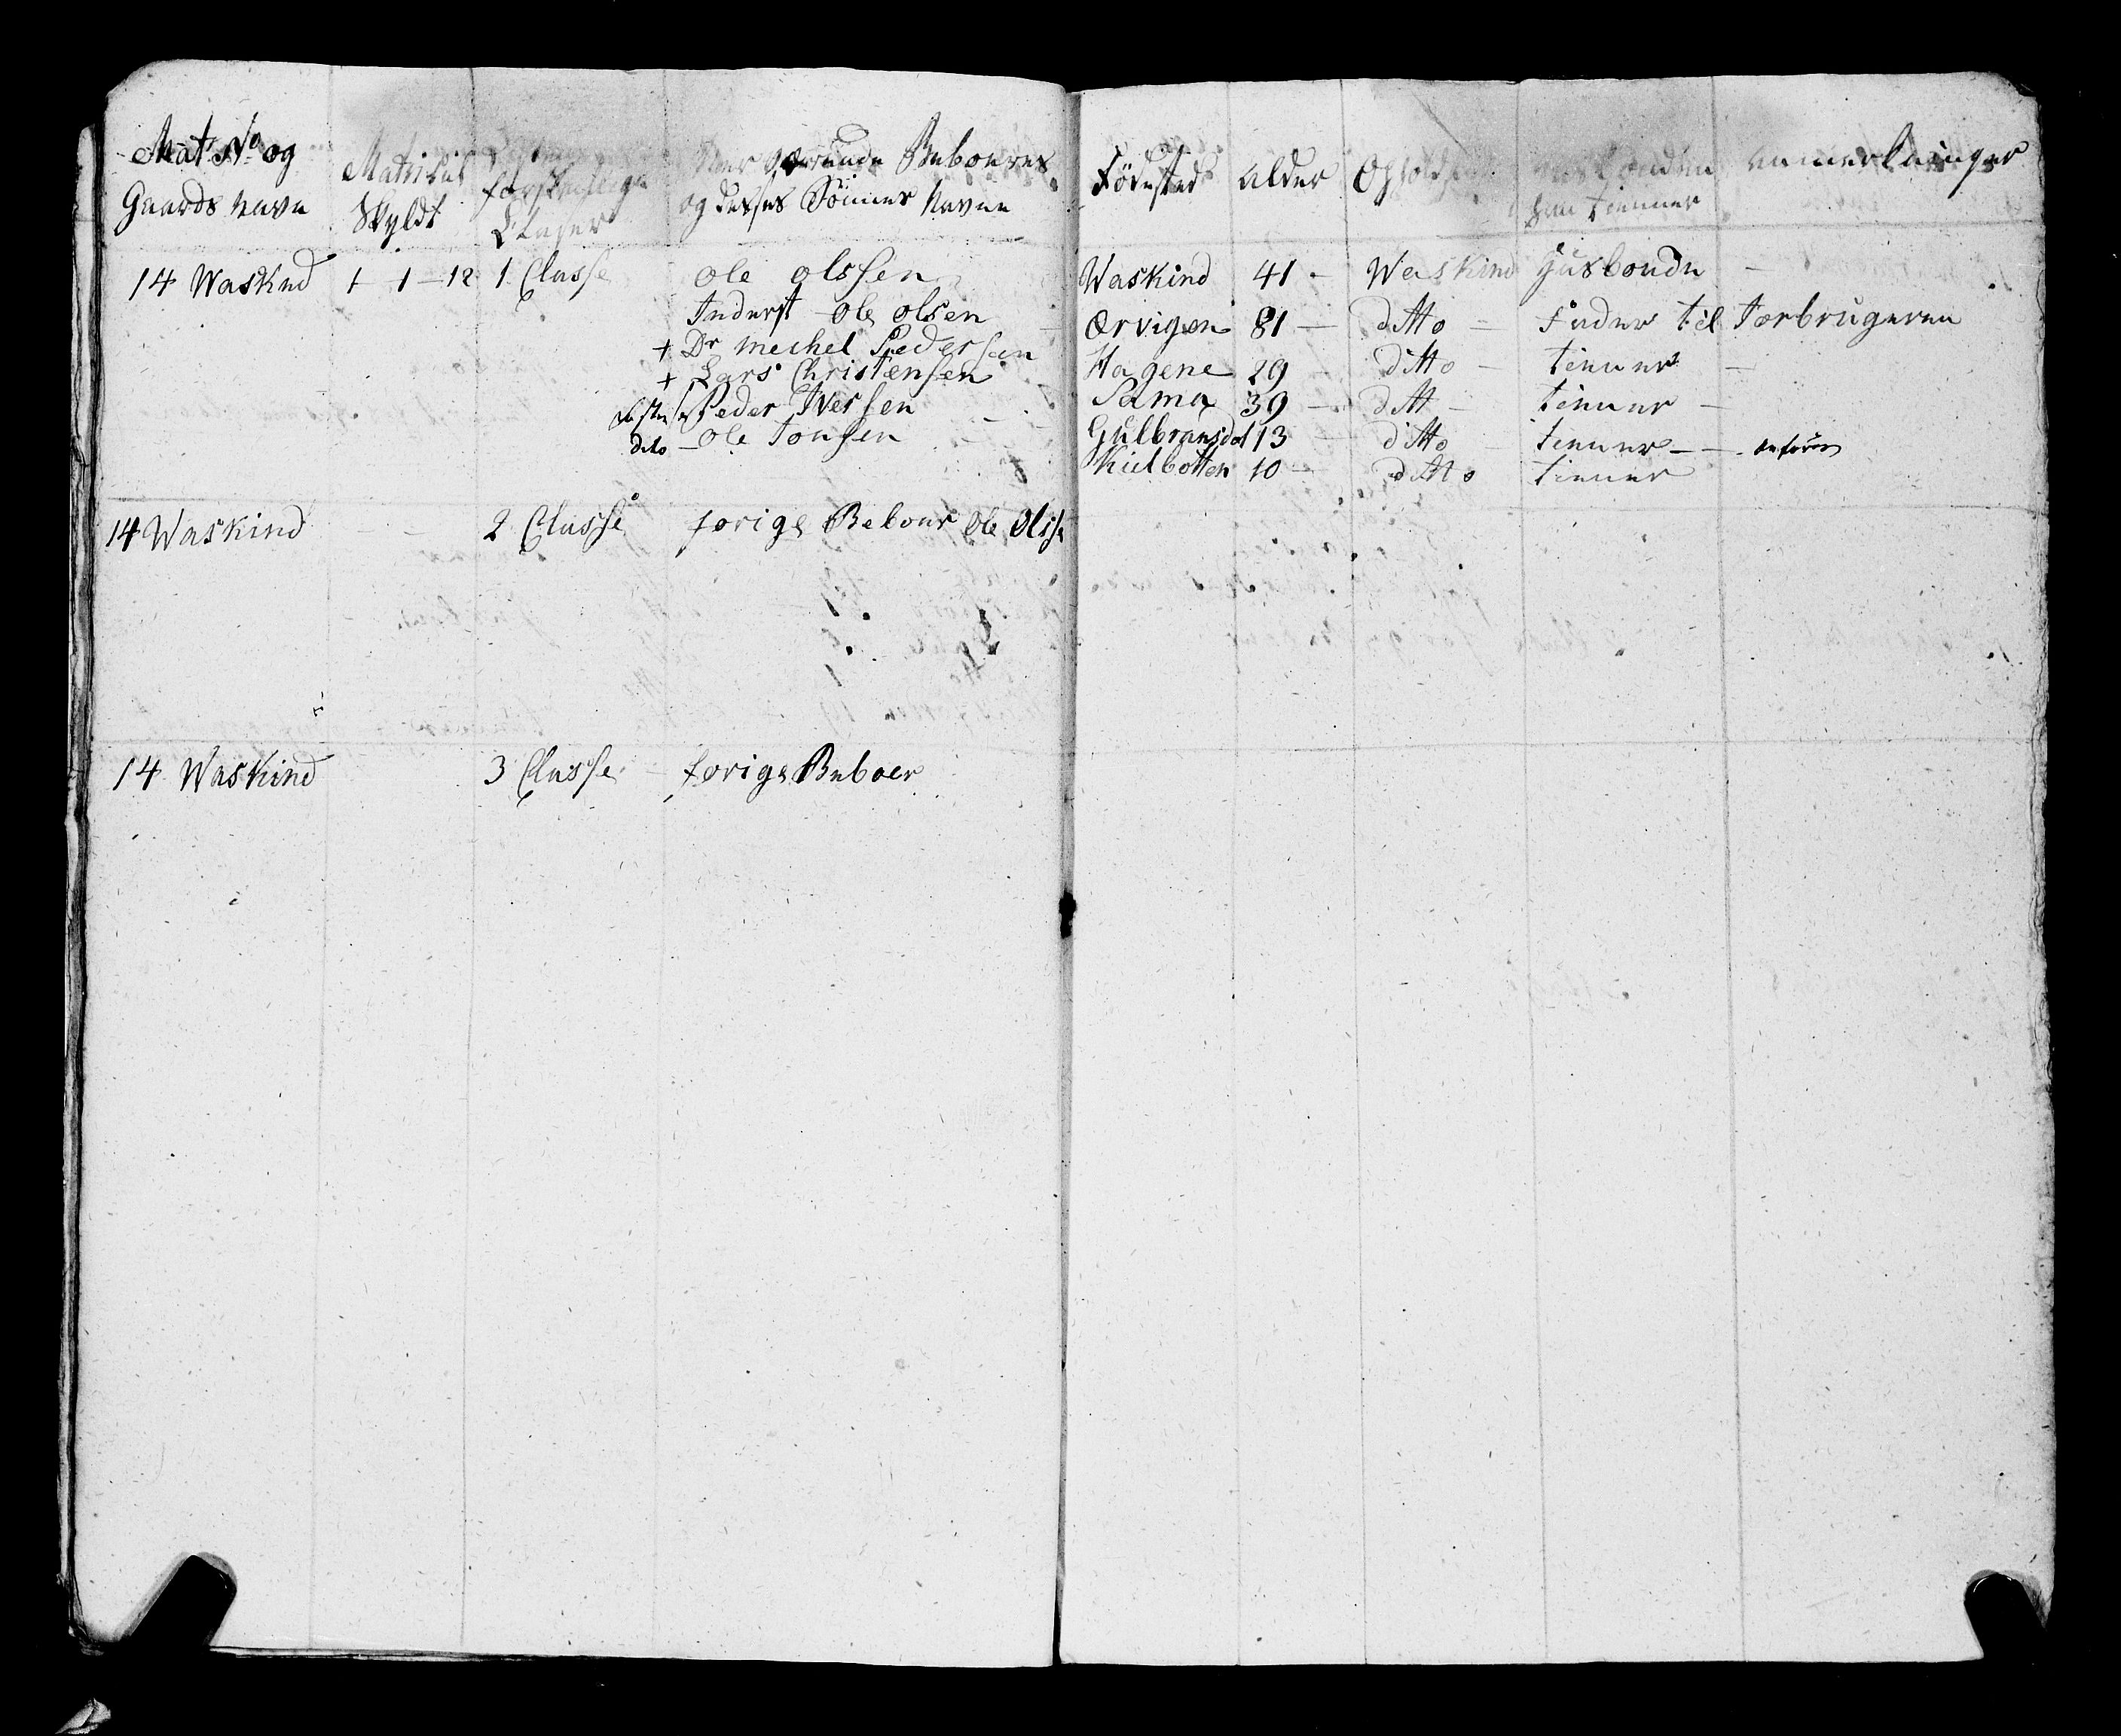 Mat No og
Gaards Navn
Matrikul
Skyldt
forskiælige
Classer
Nær værende Beboeres
og desses Sönner Navne
Födested
Alder
Opholds
han tienner
Anmerkninger
14 Waskind 1 - 1 - 12 1 Classe Ole Olssen Waskind 41 - Waskind Husbonde -
Inderst - Ole Olsen Ørvigen 81 - ditto - Fader til Forbrugeren
+ Do Mechel Pedersen Hagene 29 - ditto - tienner -
+ Lars Christensen Sama 39 - ditt - tienner -
Peder Iversen Gulbransdal 13 - ditto - tienner - -
dito - Ole Tonsen Kielbotten 10 - ditto tienner
14 Waskind - 2 Classe forige Beboer Ole Olsse
14 Waskind 3 Classe - forige Beboer